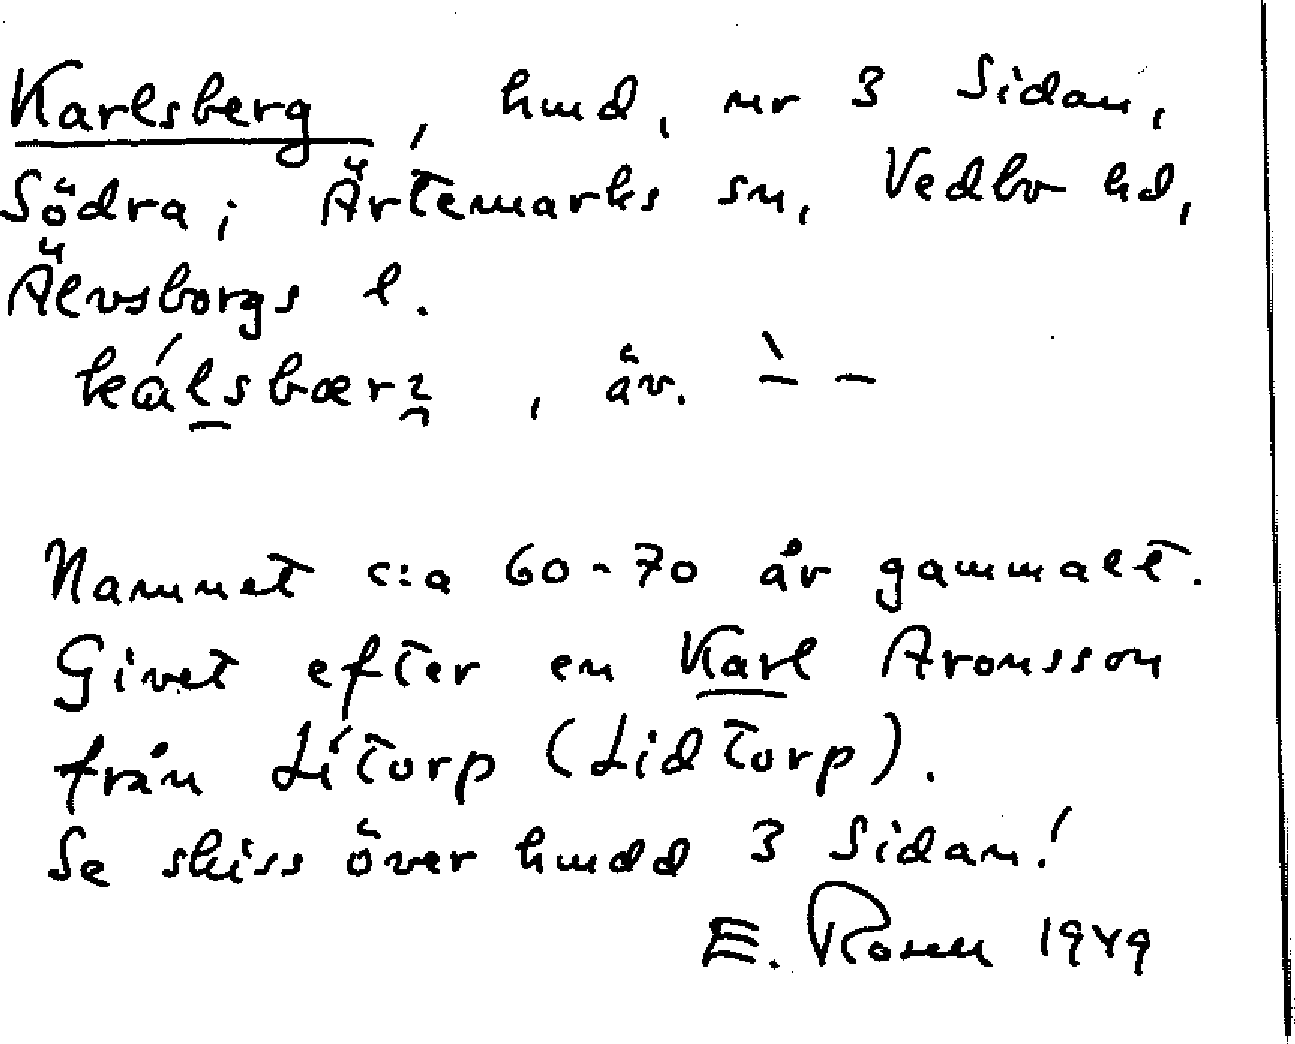 Karlsberg, hmd, nr 3 Sidan,
Södra; Ärtemarks sn, Vedbo hd,
Älvsborgs l.
, äv. `– –
Namnet c:a 60-70 år gammalt.
Givet efter en Karl Aronsson
från Litorp (Lidtorp).
Se skiss över hmdd 3 Sidan!
E. Rosen 1949